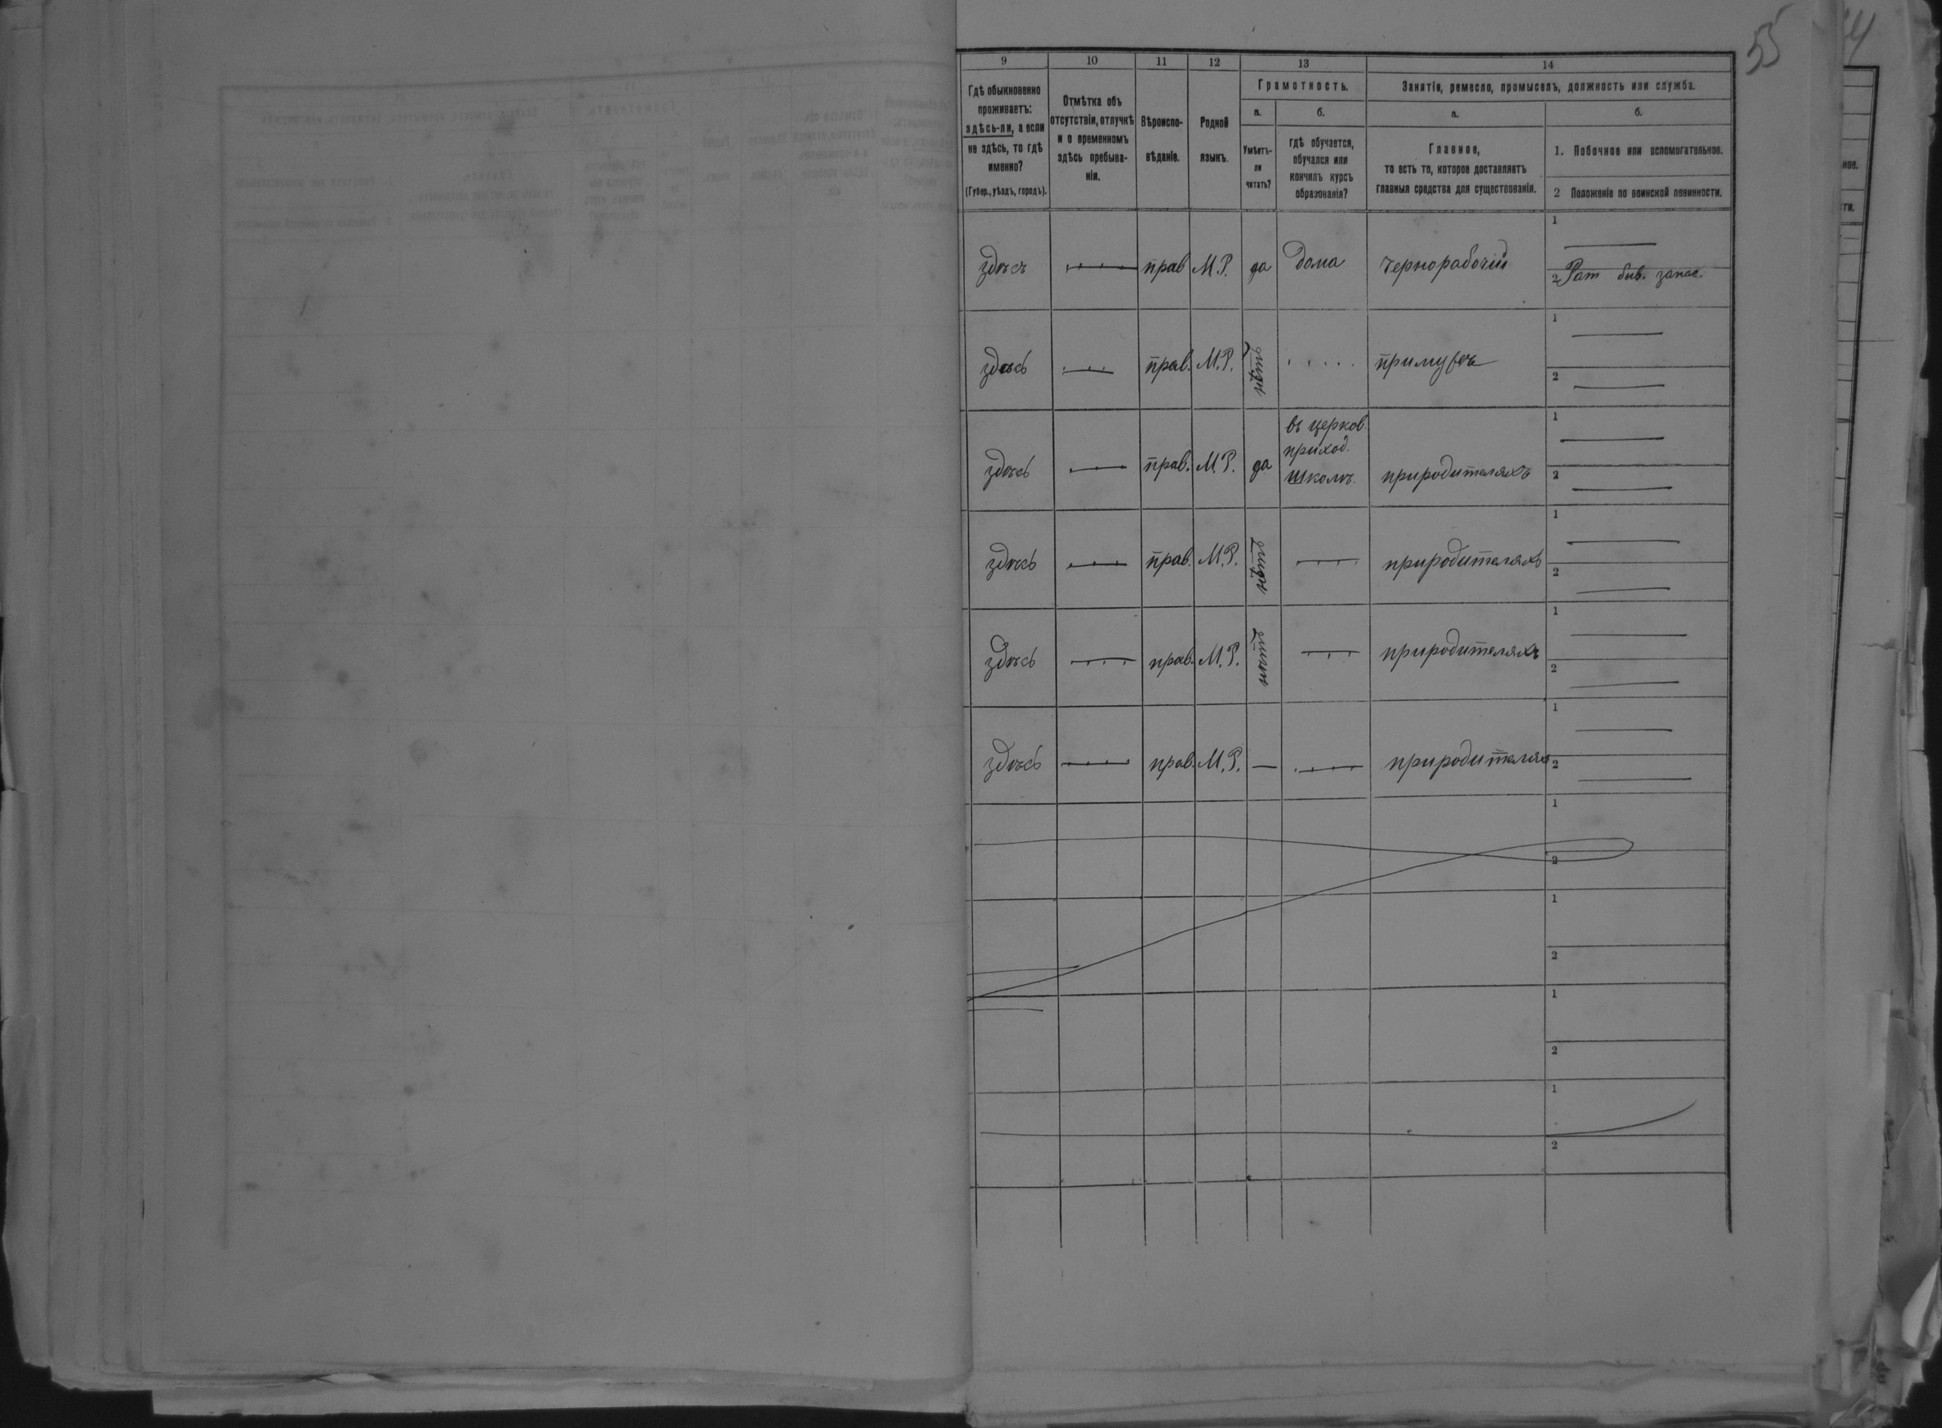 55
9 10 11 12 13 14
Гдѣ обыкновенно
проживаетъ:
здѣсь-ли, а если
не здѣсь, то гдѣ
именно?
(Губер., уѣздъ, городъ).
Отмѣтка объ
отсутствіи, отлучкѣ
и о временномъ
здѣсь пребыва-
ніи.
Вѣроиспо-
вѣданіе.
Родной
языкъ.
Грамотность.
а.
Умѣетъ-
ли
читать?
б.
гдѣ обучается,
обучался или
кончилъ курсъ
образованія?
Занятіе, ремесло, промыселъ, должность или служба.
а.
Главное,
то есть то, которое доставляетъ
главныя средства для существованія.
б.
1. Побочное или вспомогательное.
2 Положеніе по воинской повинности.
здѣсь прав М.Р. да Дома чернорабочій 1
2 Рат быв. запас.
здѣсь прав. М.Р. нѣтъ 1
2
здѣсь прав. М.Р. да въ церков.
приход.
школѣ. при родителяхъ 1
2
здѣсь прав. М.Р. нѣтъ при родителяхъ 1
2
здѣсь прав. М.Р. нѣтъ при родителяхъ 1
2
здѣсь прав. М.Р. — при родителях 1
2
1
2
1
2
1
2
1
2